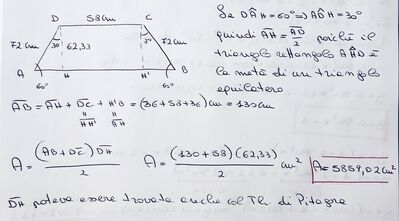 D 58 cm C
72 cm 30° 62,33 3° 72 cm
A 60° H H' 60° B
Se DÂH = 60° ⇒ AD̂H = 30°
quindi AH = AD/2 poiché il
triangolo rettangolo AĤD è
la metà di un triangolo
equilatero
AB = AH + DC + H'B = (36+58+36) cm = 130 cm
HH' AH
A = (AB + DC) DH / 2 A = (130+58)(62,33) / 2 cm² A = 5859,02 cm²
DH poteva essere trovata anche col Th. di Pitagora